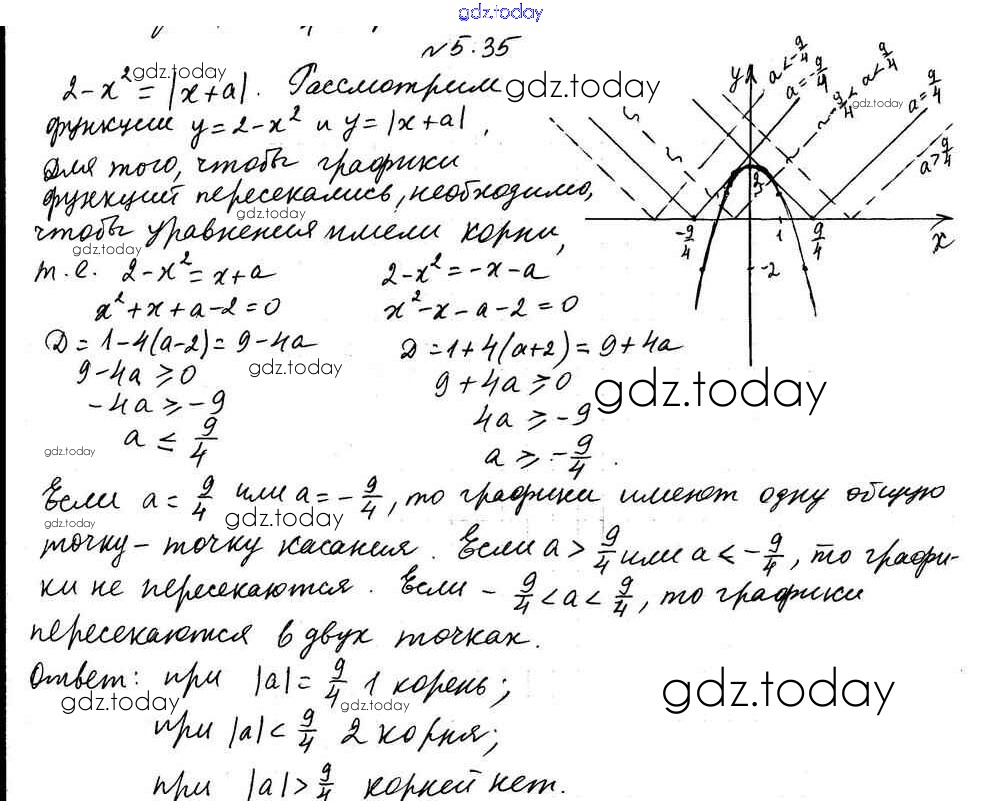 gdz.today
№5.35
2-x² = |x+a|. Рассмотрим
gdz.today
gdz.today
функции y=2-x² и y=|x+a|,
Для того, чтобы графики
функций пересекались, необходимо,
gdz.today
чтобы уравнения имели корни,
gdz.today
т.е. 2-x²=x+a 2-x²=-x-a
x²+x+a-2=0 x²-x-a-2=0
D=1-4(a-2)=9-4a D=1+4(a+2)=9+4a
gdz.today
9-4a≥0 9+4a≥0
gdz.today
-4a≥-9 4a≥-9
a≤9/4 a≥-9/4.
gdz.today
Если a=9/4 или a=-9/4, то графики имеют одну общую
gdz.today
gdz.today
gdz.today
точку - точку касания. Если a>9/4 или a<-9/4, то графи-
ки не пересекаются. Если -9/4<a<9/4, то графики
пересекаются в двух точках.
Ответ: при |a|=9/4 1 корень;
gdz.today
gdz.today
gdz.today
при |a|<9/4 2 корня;
при |a|>9/4 корней нет.
y
a<-9/4
a=-9/4
-9/4<a<9/4
gdz.today
a=9/4
a>9/4
-9/4
1
9/4
x
-2